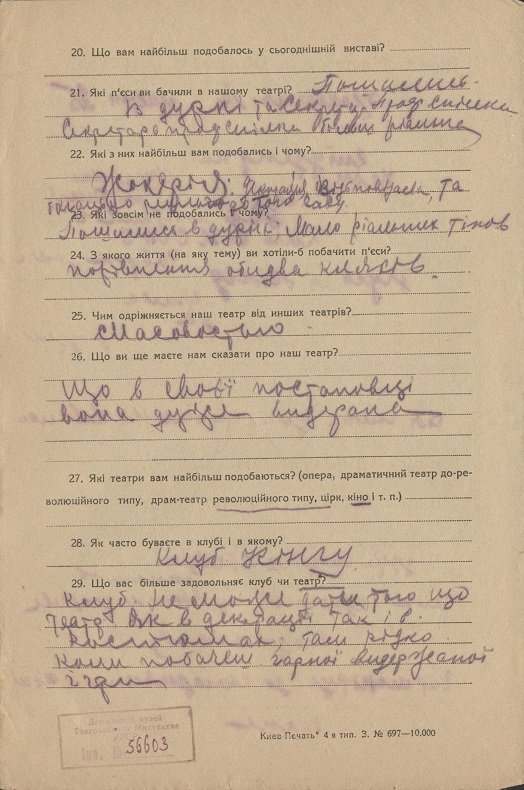 20. Що вам найбільш подобалось у сьогоднішній виставі?
21. Які п'єси ви бачили в нашому театрі? Пошились
В дурні та Секретар Профспілки
Секретар профспілки більш
22. Які з них найбільш вам подобались і чому?
Жакерія. та
23. Які зовсім не подобались і чому?
Пошились в дурні. Мало ріальних тіпов
24. З якого життя (на яку тему) ви хотіли-б побачити п'єси?
порівняння обидва клясів.
25. Чим одріжняється наш театр від инших театрів?
Масовостью.
26. Що ви ще маєте нам сказати про наш театр?
Що в своєї постановці
вона дуже видержана
27. Які театри вам найбільш подобаються? (опера, драматичний театр до-ре-
волюційного типу, драм-театр революційного типу, цірк, кіно і т. п.)
28. Як часто буваєте в клубі і в якому?
Клуб
29. Що вас більше задовольняє клуб чи театр?
Клуб не може дати того що
театр, як в декорації так і в
костюмах, там рідко
коли побачиш гарної видержаної
гри
Державний музей
Театрального Мистецтва
Інв. № 56603
Киев Печать" 4 я тип. З. № 697—10,000